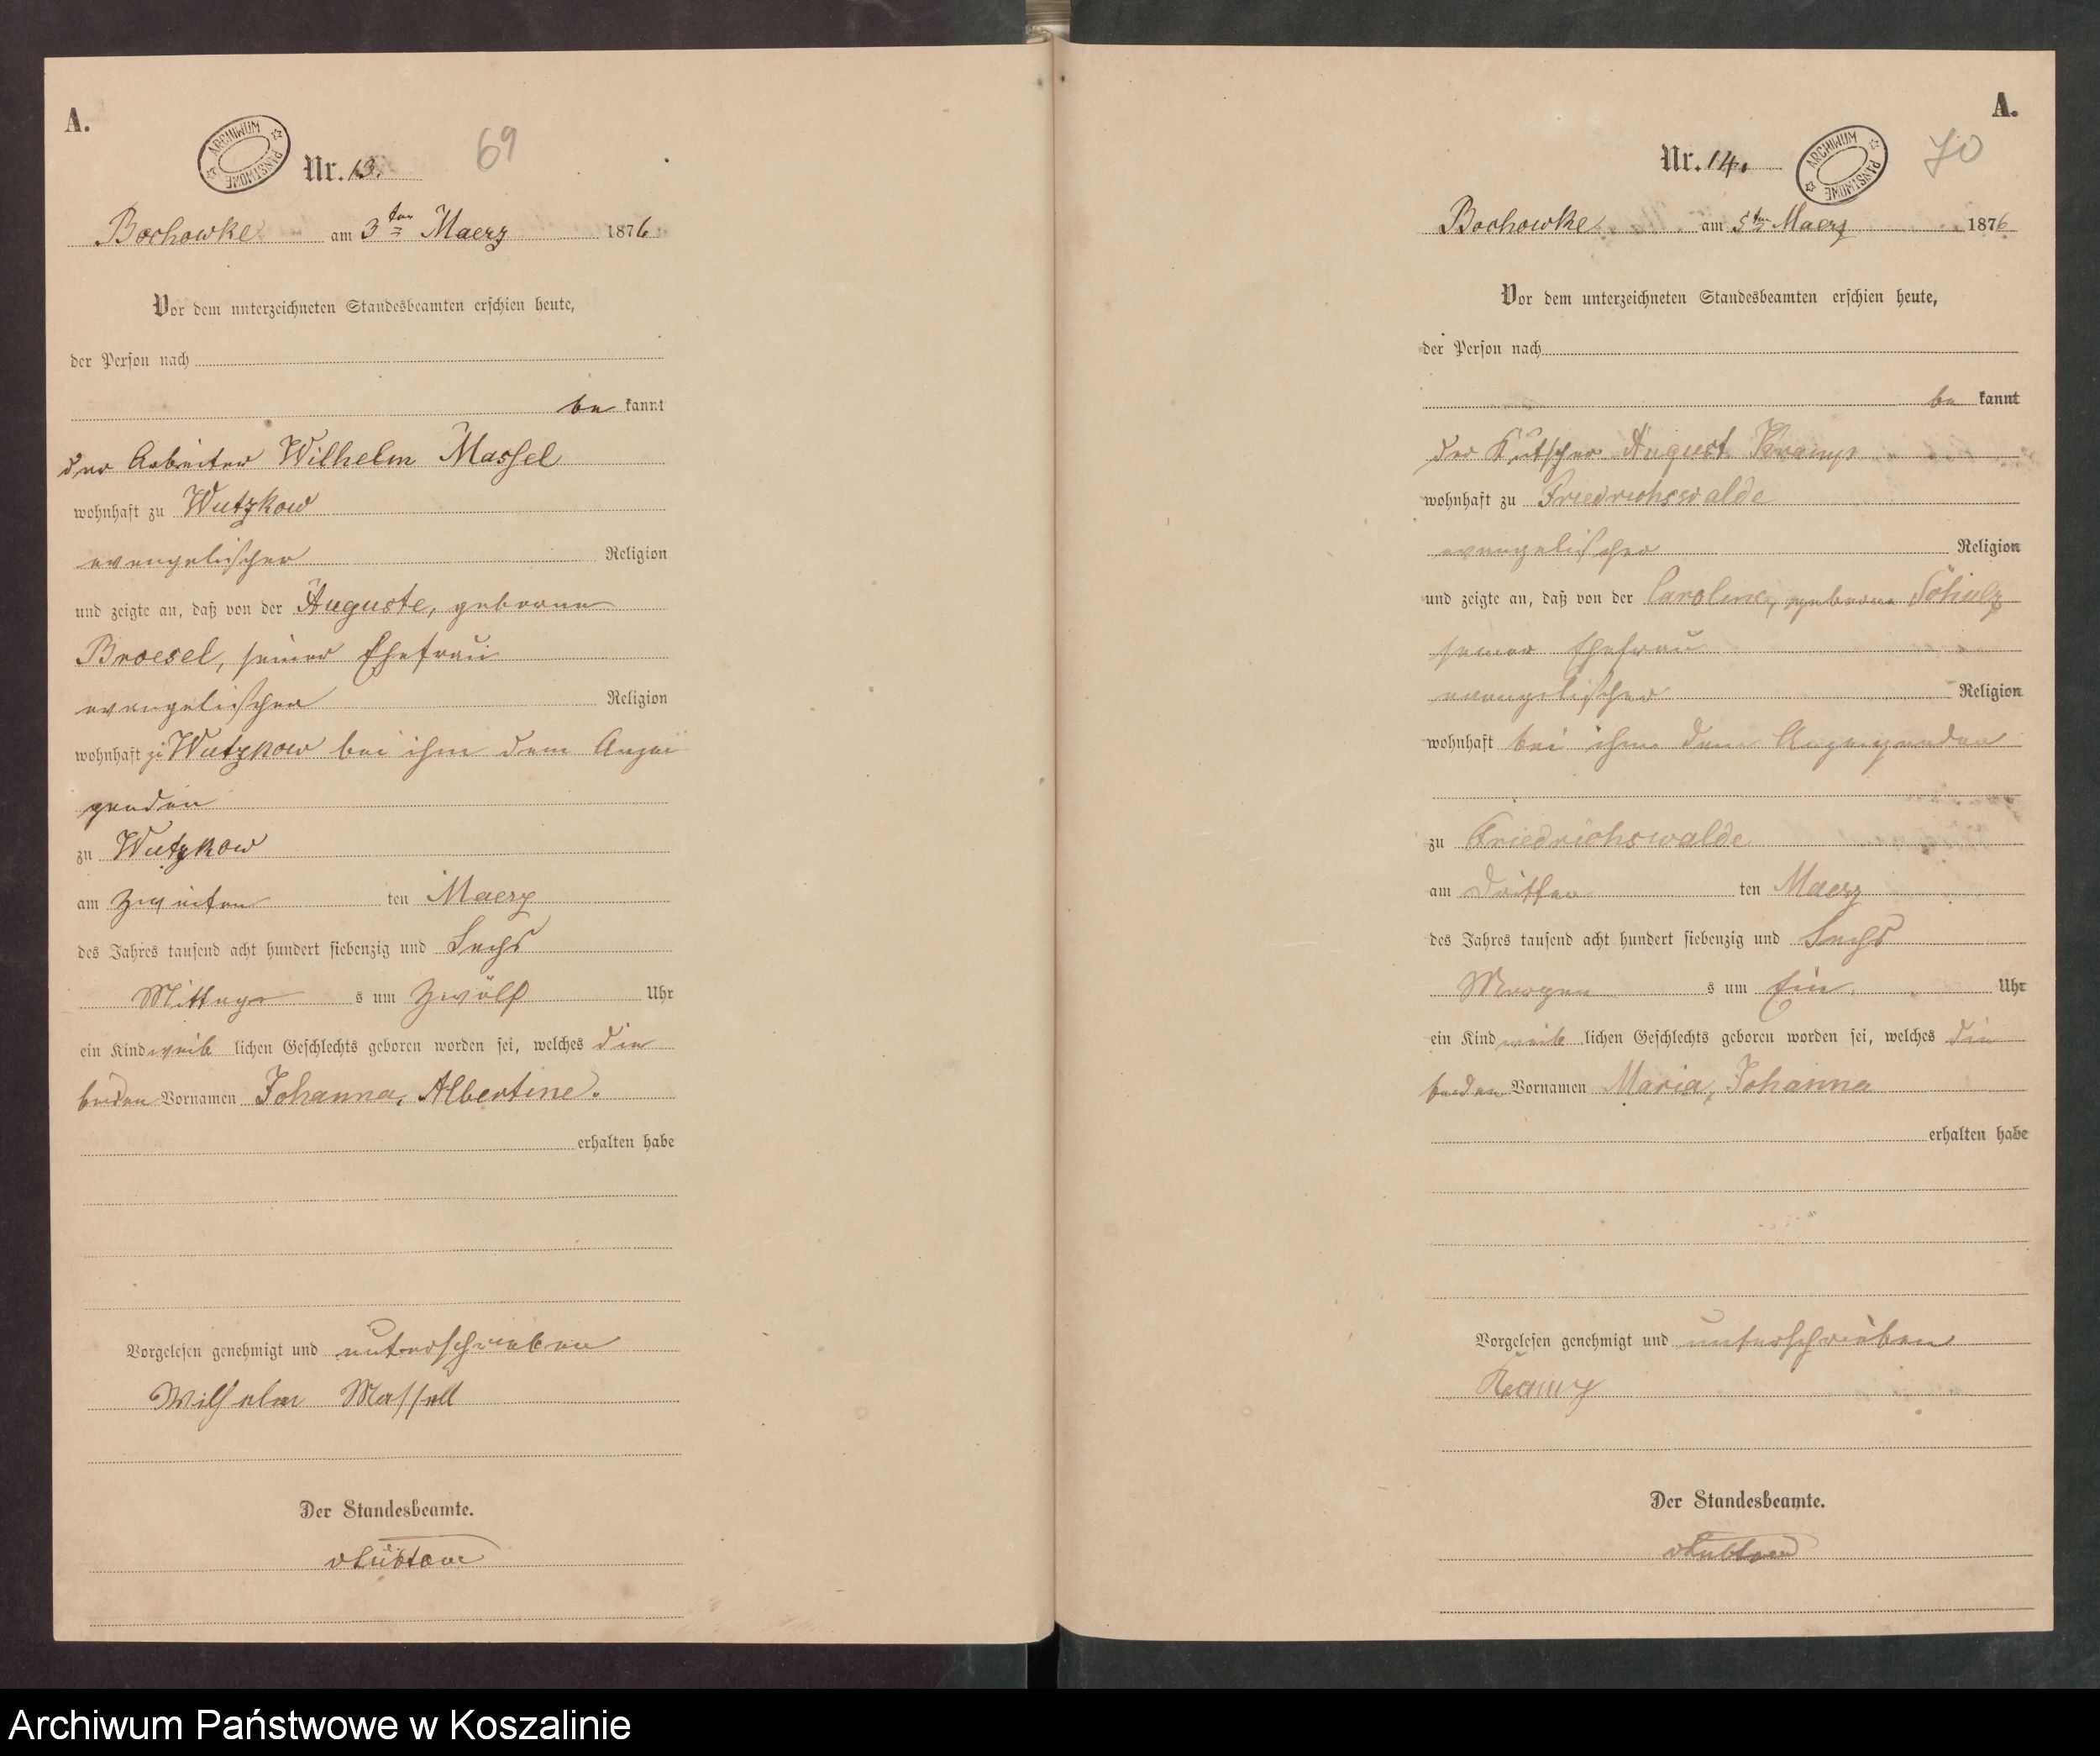 A.
ARCHIWUM PAŃSTWOWE
Nr. 13.
69
Bochowke am 3ten Maerz 1876
Vor dem unterzeichneten Standesbeamten erschien heute,
der Person nach
be kannt
der Arbeiter Wilhelm Massel
wohnhaft zu Wutzkow
evangelischer Religion
und zeigte an, daß von der Auguste, geborene
Broesel, seiner Ehefrau
evangelischer Religion
wohnhaft zu Wutzkow bei ihm dem Anzei
genden
zu Wutzkow
am zweiten ten Maerz
des Jahres tausend acht hundert siebenzig und Sechs
Mittags s um zwölf Uhr
ein Kind weib lichen Geschlechts geboren worden sei, welches die
beiden Vornamen Johanna, Albertine.
erhalten habe
Vorgelesen genehmigt und unterschrieben
Wilhelm Massell
Der Standesbeamte.
A.
Nr. 14.
ARCHIWUM PAŃSTWOWE
70
Bochowke am 5ten Maerz 1876
Vor dem unterzeichneten Standesbeamten erschien heute,
der Person nach
be kannt
der Kutscher August Kramp
wohnhaft zu Friedrichswalde
evangelischer Religion
und zeigte an, daß von der Caroline, geborene Schulz
seiner Ehefrau
evangelischer Religion
wohnhaft bei ihm dem Anzeigenden
zu Friedrichswalde
am dritten ten Maerz
des Jahres tausend acht hundert siebenzig und Sechs
Morgen s um Ein Uhr
ein Kind weib lichen Geschlechts geboren worden sei, welches die
beiden Vornamen Maria, Johanna
erhalten habe
Vorgelesen genehmigt und unterschrieben
Kramp
Der Standesbeamte.
Archiwum Państwowe w Koszalinie